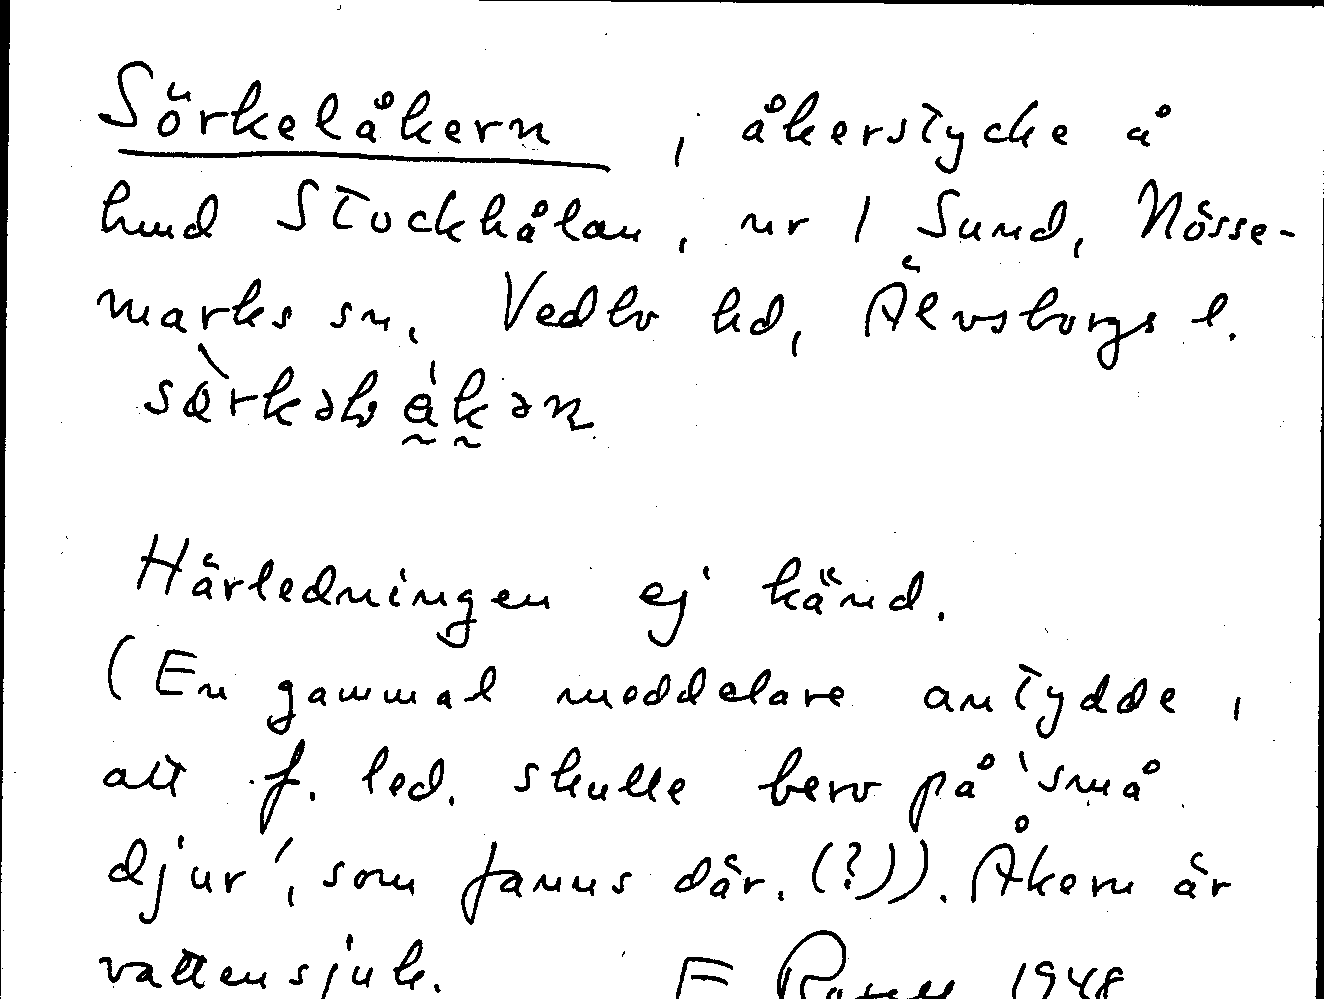 Sörkelåkern, åkerstycke å
hmd Stockhålan, nr 1 Sund, Nösse-
marks sn, Vedbo hd, Älvsborgs l.
Härledningen ej känd.
(En gammal meddelare antydde,
att f. led. skulle bero på 'små
djur', som fanns där. (?)). Åkern är
vattensjuk. F 1948